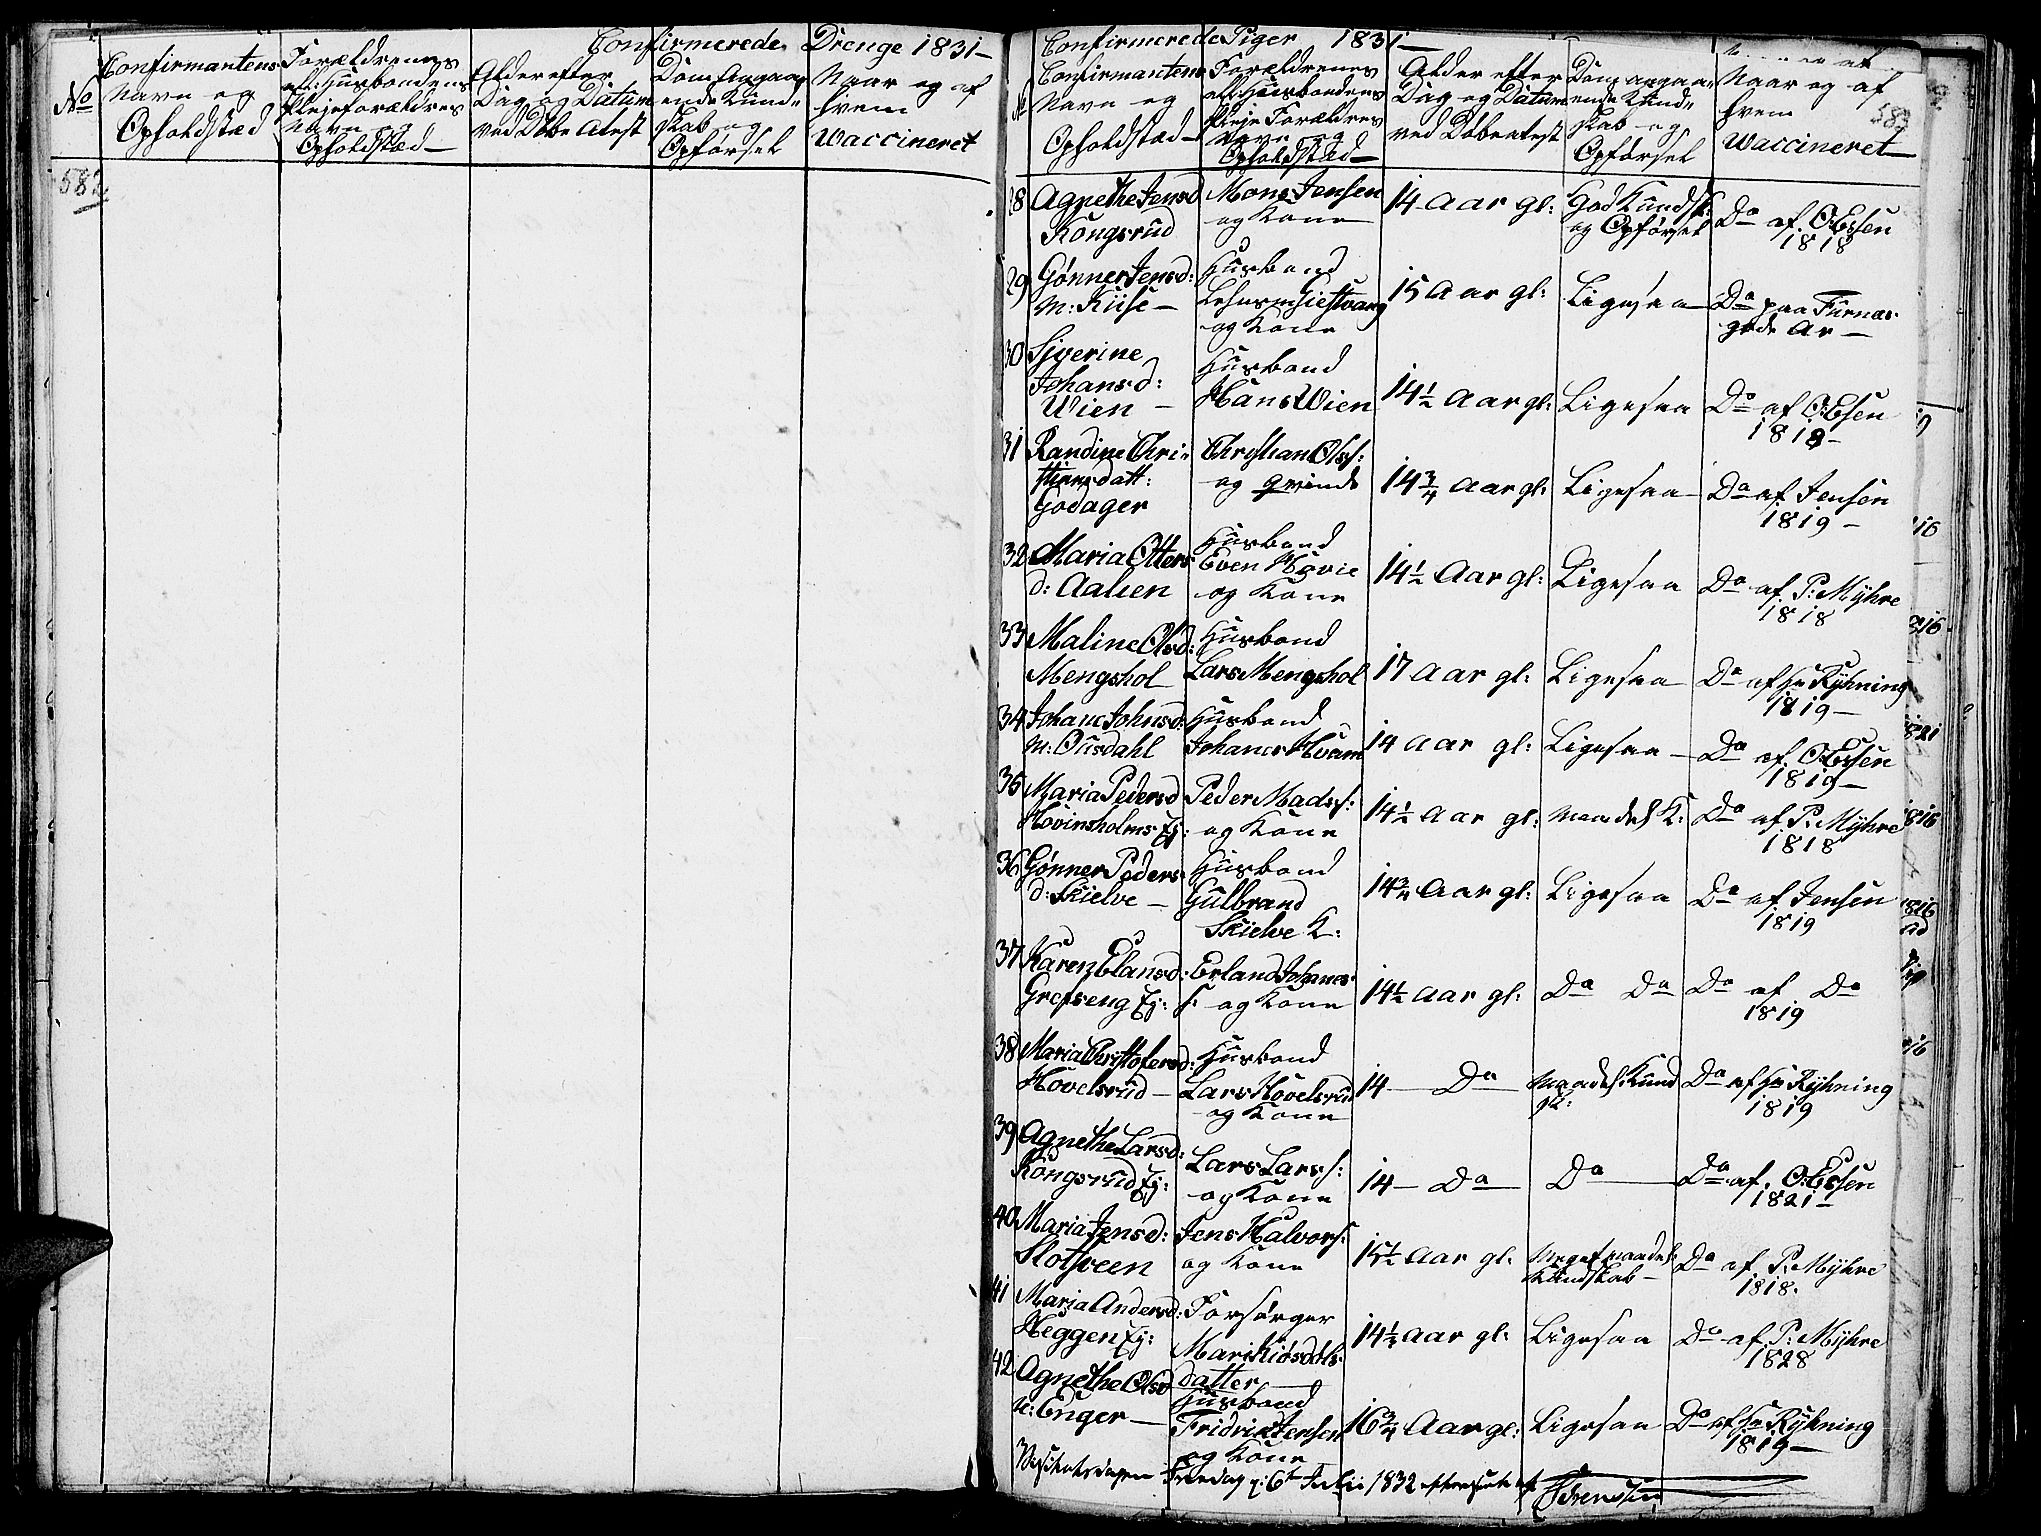 Confirmerede Drenge 1831
No
Confirmantens
Navn og
Opholdstæd
Forældrenes
ell: Husbondens
Plejeforældres
Navn og
Opholdstæd
Alder efter
Dag og Datum
ved Døbe Atest
Dom Angaa
ende Kund
skab og
Opførsel
Naar og af
hvem
Waccineret
582
Confirmerede Piger 1831
Confirmantens
Navn og
Opholdstæd
Forældrenes
ell Husbondens
Pleje Forældres
Navn og
Opholdstæd
Alder efter
Dag og Datum
ved Døbeatest
Dom angaa
ende Kund
skab og
Opførsel
Naar og af
hvem
Waccineret
583
28 Agnethe Jensd Kongsrud
Mons Jensen og Kone
14 Aar gl:
God Kundsk: og Opførsel
Do af O: Essen 1818
29 Gønner Jensd: n: Kiise
Husbond Lehnsm Gistvang og Kone
15 Aar gl:
Ligesaa
Do paa Furnæs
30 Sigerine Johansd: Wien
Husbond Hans Wien
14½ Aar gl:
Ligesaa
Do af O: Essen 1818
31 Randine Chri stiansdatt: Godager
Christian Olss: og qvinde
14¾ Aar gl:
Ligesaa
Do af Jensen 1819
32 Maria Otters d: Aalien
Husbond Even Hovie og Kone
14½ Aar gl:
Ligesaa
Do af P: Myhre 1818
33 Maline Olsd: Mengshol
Husbond Lars Mengshol
17 Aar gl:
Ligesaa
Do af Hr Ryhning 1819
34 Johane Johnsd: n: Ousdahl
Husbond Johanes Hvam
14 Aar gl:
Ligesaa
Do af O: Essen 1819
35 Maria Pedersd Hovinsholms Ej:
Peder Madss: og Kone
14½ Aar gl:
maadel K:
Do af P: Myhre 1818
36 Gønner Peders d: Skielve
Husbond Gulbrand Skielve K:
14¾ Aar gl:
Ligesaa
Do af Jensen 1819
37 Karen Elansd: Grefseng Ej:
Erland Johanes s: og Kone
14½ Aar gl:
Do Do
Do af Do 1819
38 Maria Christofersd: Hovelsrud
Husbond Lars Hovelsrud og Kone
14 Do
maadel: Kund sk:
Do af Hr Ryhning 1819
39 Agnethe Larsd: Kongsrud Ej:
Lars Larss: og Kone
14 Do
Do
Do af O: Essen 1821
40 Maria Jensd: Slotsveen
Jens Halvors: og Kone
15½ Aar gl:
Meget maadel: Kundskab
Do af P: Myhre 1818.
41 Maria Andersd: Heggen Ej:
Forsørger Mari datter
14½ Aar gl:
Ligesaa
Do af P: Myhre 1828
42 Agnethe Olsd n: Enger
Husbond Fridrik Jensen og Kone
16¾ Aar gl:
Ligesaa
Do af Hr Ryhning 1819
Visitatsdagen Fredag d: 6te Julii 1832 efterseet af
Sørenssen